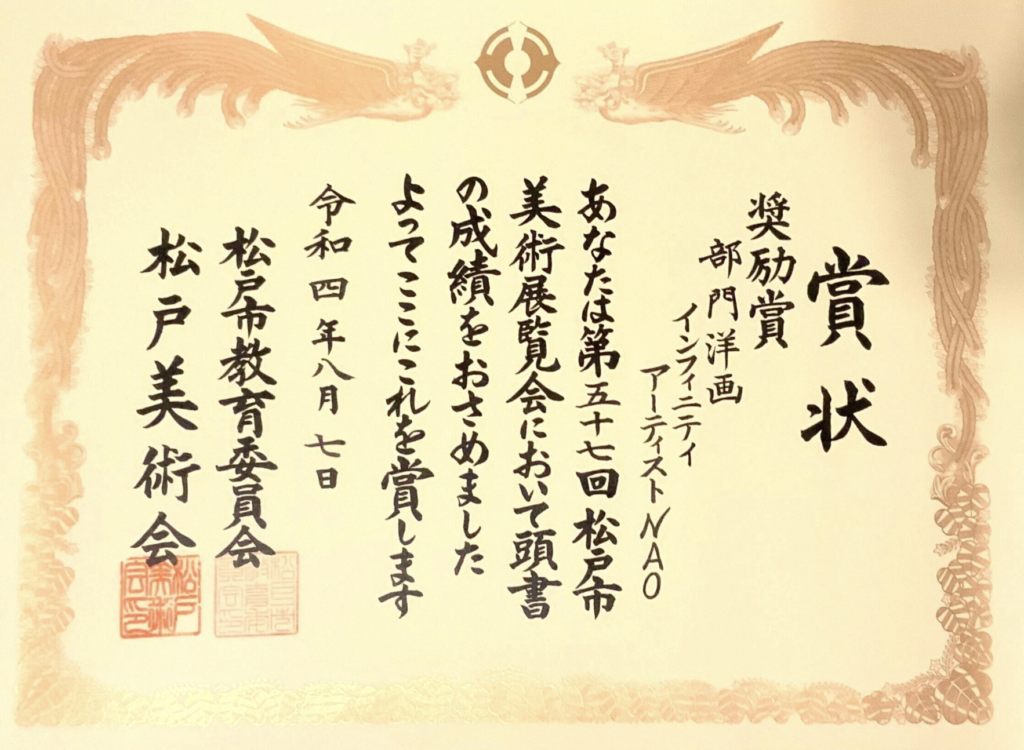 賞状
奨励賞
部門洋画
インフィニティ
アーティストNAO
あなたは第五十七回松戸市
美術展覧会において頭書
の成績をおさめました
よってここにこれを賞します
令和四年八月七日
松戸市教育委員会
松戸美術会